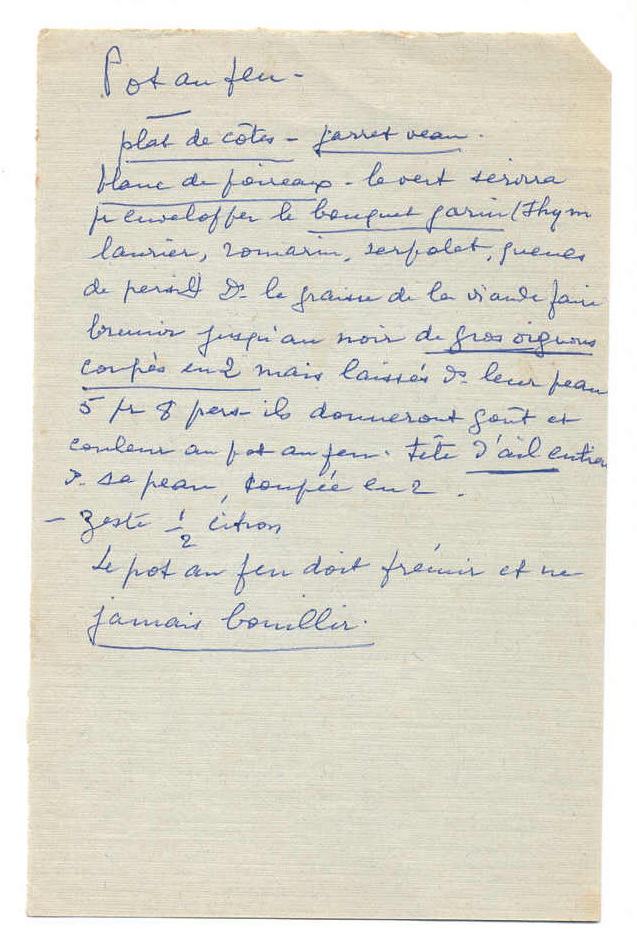 Pot au feu -
plat de côtes - jarret veau.
blanc de poireaux - le vert servira
pr envelopper le bouquet garni (Thym
laurier, romarin, serpolet, queues
de persil) Ds la graisse de la viande faire
brunir jusqu'au noir de gros oignons
coupés en 2 mais laissés Ds leur peau
5 pr 8 pers - ils donneront goût et
couleur au pot au feu. Tête d'ail entier
Ds sa peau, coupée en 2.
- Zeste 1/2 citron
Le pot au feu doit frémir et ne
jamais bouillir.